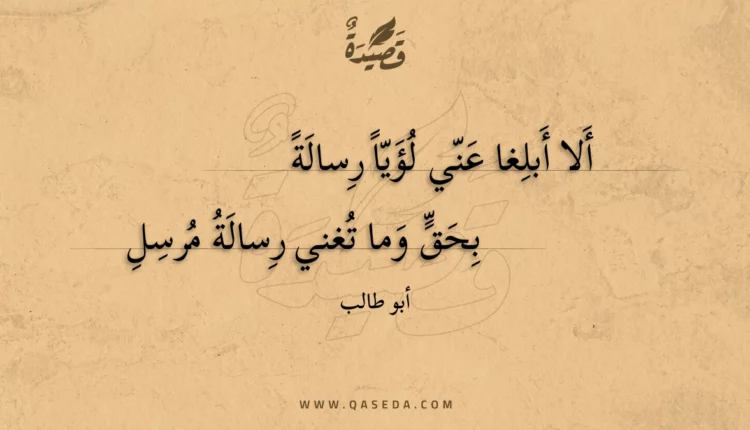 قَصِيدَةٌ
أَلا أَبلِغا عَنّي لُؤَيّاً رِسالَةً
بِحَقٍّ وَما تُغني رِسالَةُ مُرسِلِ
أبو طالب
WWW.QASEDA.COM